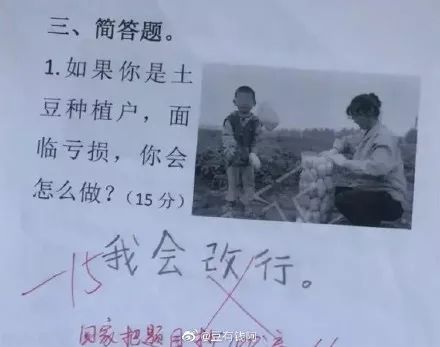 三、简答题。
1.如果你是土
豆种植户，面
临亏损，你会
怎么做？(15分)
-15
我会改行。
@豆有钱阿